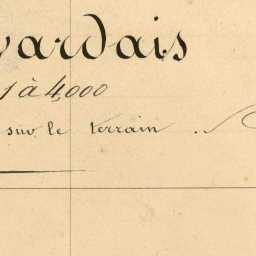 vardais
1 à 4,000
sur le terrain.